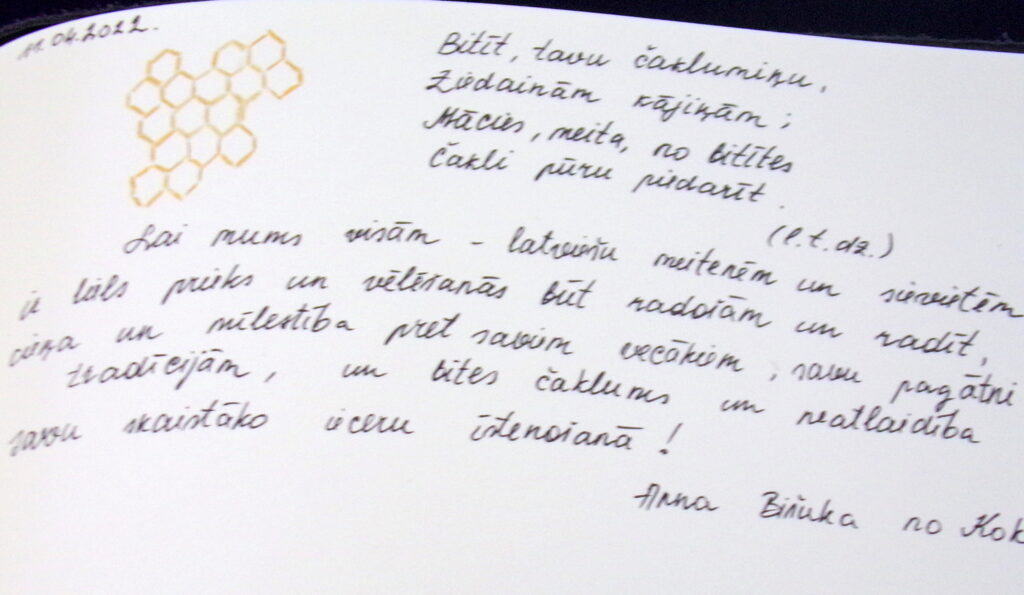 11.04.2022.
Bitīt, tavu čaklumiņu,
Ziedainām kājiņām;
Mācies, meita, no bitītes
Čakli pūru piedarīt.
(l.t.dz.)
Lai mums visām - latviešu meitenēm un sievietēm
ir liels prieks un vēlēšanās būt radošām un radīt,
cieņa un mīlestība pret saviem vecākiem, savu pagātni
tradīcijām, un bites čaklums un neatlaidība
savu skaistāko ieceru īstenošanā!
Anna no Kok